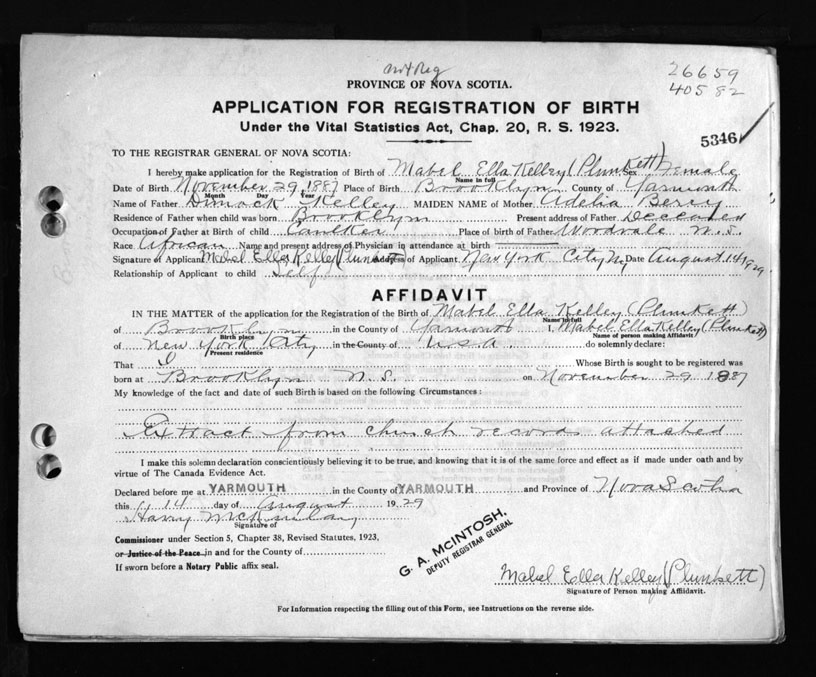 not Reg
26659
40582
PROVINCE OF NOVA SCOTIA.
APPLICATION FOR REGISTRATION OF BIRTH
Under the Vital Statistics Act, Chap. 20, R. S. 1923.
5346
TO THE REGISTRAR GENERAL OF NOVA SCOTIA:
I hereby make application for the Registration of Birth of Mabel Ella Kelley (Plunkett) Sex Female
Name in full
Date of Birth November 29 1887 Place of Birth Brooklyn County of Yarmouth
Month Day Year
Name of Father Dimock Kelley MAIDEN NAME of Mother Adelia Berry
Residence of Father when child was born Brooklyn Present address of Father Deceased
Occupation of Father at Birth of child Caulker Place of birth of Father Woodvale N.S.
Race African Name and present address of Physician in attendance at birth
Signature of Applicant Mabel Ella Kelley (Plunkett) Address of Applicant. New York City Ny Date August 14 1929
Relationship of Applicant to child Self
AFFIDAVIT
IN THE MATTER of the application for the Registration of the Birth of Mabel Ella Kelley (Plunkett)
Name in full
of Brooklyn in the County of Yarmouth I, Mabel Ella Kelley (Plunkett)
Birth place Name of person making Affidavit
of New York City in the County of U.S.A. do solemnly declare:
Present residence
That I Whose Birth is sought to be registered was
born at Brooklyn N.S. on November 29 1887
My knowledge of the fact and date of such Birth is based on the following Circumstances:
Extract from church records attached
I make this solemn declaration conscientiously believing it to be true, and knowing that it is of the same force and effect as if made under oath and by
virtue of The Canada Evidence Act.
Declared before me at YARMOUTH in the County of YARMOUTH and Province of Nova Scotia
this 14 day of August 1929
Harry McKinlay
Signature of
Commissioner under Section 5, Chapter 38, Revised Statutes, 1923,
or Justice of the Peace in and for the County of
If sworn before a Notary Public affix seal.
G. A. McINTOSH,
DEPUTY REGISTRAR GENERAL
Mabel Ella Kelley (Plunkett)
Signature of Person making Affidavit.
For Information respecting the filling out of this Form, see Instructions on the reverse side.